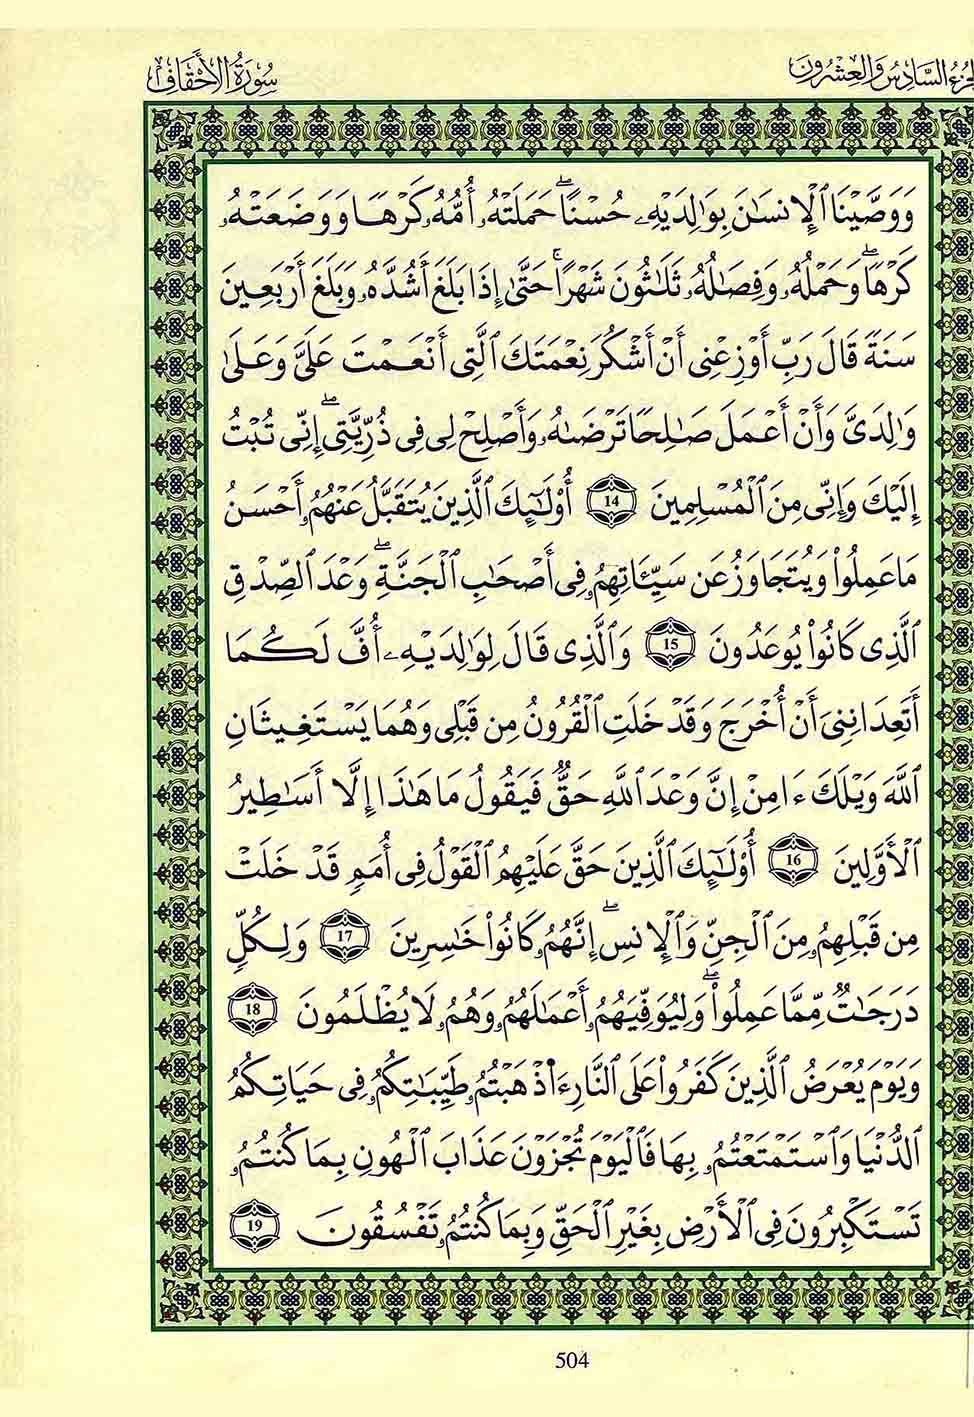 الجزء السادس والعشرون
سورة الأحقاف
وَوَصَّيْنَا ٱلْإِنسَٰنَ بِوَٰلِدَيْهِۦ حُسْنًاۖ حَمَلَتْهُۥ أُمُّهُۥ كَرْهًا وَوَضَعَتْهُۥ
كَرْهًاۖ وَحَمْلُهُۥ وَفِصَٰلُهُۥ ثَلَٰثُونَ شَهْرًاۚ حَتَّىٰ إِذَا بَلَغَ أَشُدَّهُۥ وَبَلَغَ أَرْبَعِينَ
سَنَةً قَالَ رَبِّ أَوْزِعْنِى أَنْ أَشْكُرَ نِعْمَتَكَ ٱلَّتِى أَنْعَمْتَ عَلَىَّ وَعَلَىٰ
وَٰلِدَىَّ وَأَنْ أَعْمَلَ صَٰلِحًا تَرْضَىٰهُۥ وَأَصْلِحْ لِى فِى ذُرِّيَّتِىۖ إِنِّى تُبْتُ
إِلَيْكَ وَإِنِّى مِنَ ٱلْمُسْلِمِينَ 14 أُوْلَٰٓئِكَ ٱلَّذِينَ يُتَقَبَّلُ عَنْهُمُۥ أَحْسَنُ
مَا عَمِلُوا۟ وَيُتَجَاوَزُ عَن سَيِّـَٔاتِهِمُۥ فِى أَصْحَٰبِ ٱلْجَنَّةِۖ وَعْدَ ٱلصِّدْقِ
ٱلَّذِى كَانُوا۟ يُوعَدُونَ 15 وَٱلَّذِى قَالَ لِوَٰلِدَيْهِۦ أُفَّ لَكُمَا
أَتَعِدَانِنِىَ أَنْ أُخْرَجَ وَقَدْ خَلَتِ ٱلْقُرُونُ مِن قَبْلِى وَهُمَا يَسْتَغِيثَانِ
ٱللَّهَ وَيْلَكَ ءَامِنْ إِنَّ وَعْدَ ٱللَّهِ حَقٌّ فَيَقُولُ مَا هَٰذَا إِلَّا أَسَٰطِيرُ
ٱلْأَوَّلِينَ 16 أُوْلَٰٓئِكَ ٱلَّذِينَ حَقَّ عَلَيْهِمُ ٱلْقَوْلُ فِى أُمَمٍ قَدْ خَلَتْ
مِن قَبْلِهِمُۥ مِنَ ٱلْجِنِّ وَٱلْإِنسِۖ إِنَّهُمُۥ كَانُوا۟ خَٰسِرِينَ 17 وَلِكُلٍّ
دَرَجَٰتٌ مِّمَّا عَمِلُوا۟ۖ وَلِيُوَفِّيَهُمُۥ أَعْمَٰلَهُمُۥ وَهُمُۥ لَا يُظْلَمُونَ 18
وَيَوْمَ يُعْرَضُ ٱلَّذِينَ كَفَرُوا۟ عَلَى ٱلنَّارِ ءَا۬ذْهَبْتُمُۥ طَيِّبَٰتِكُمُۥ فِى حَيَاتِكُمُ
ٱلدُّنْيَا وَٱسْتَمْتَعْتُمُۥ بِهَا فَٱلْيَوْمَ تُجْزَوْنَ عَذَابَ ٱلْهُونِ بِمَا كُنتُمُۥ
تَسْتَكْبِرُونَ فِى ٱلْأَرْضِ بِغَيْرِ ٱلْحَقِّ وَبِمَا كُنتُمُۥ تَفْسُقُونَ 19
504